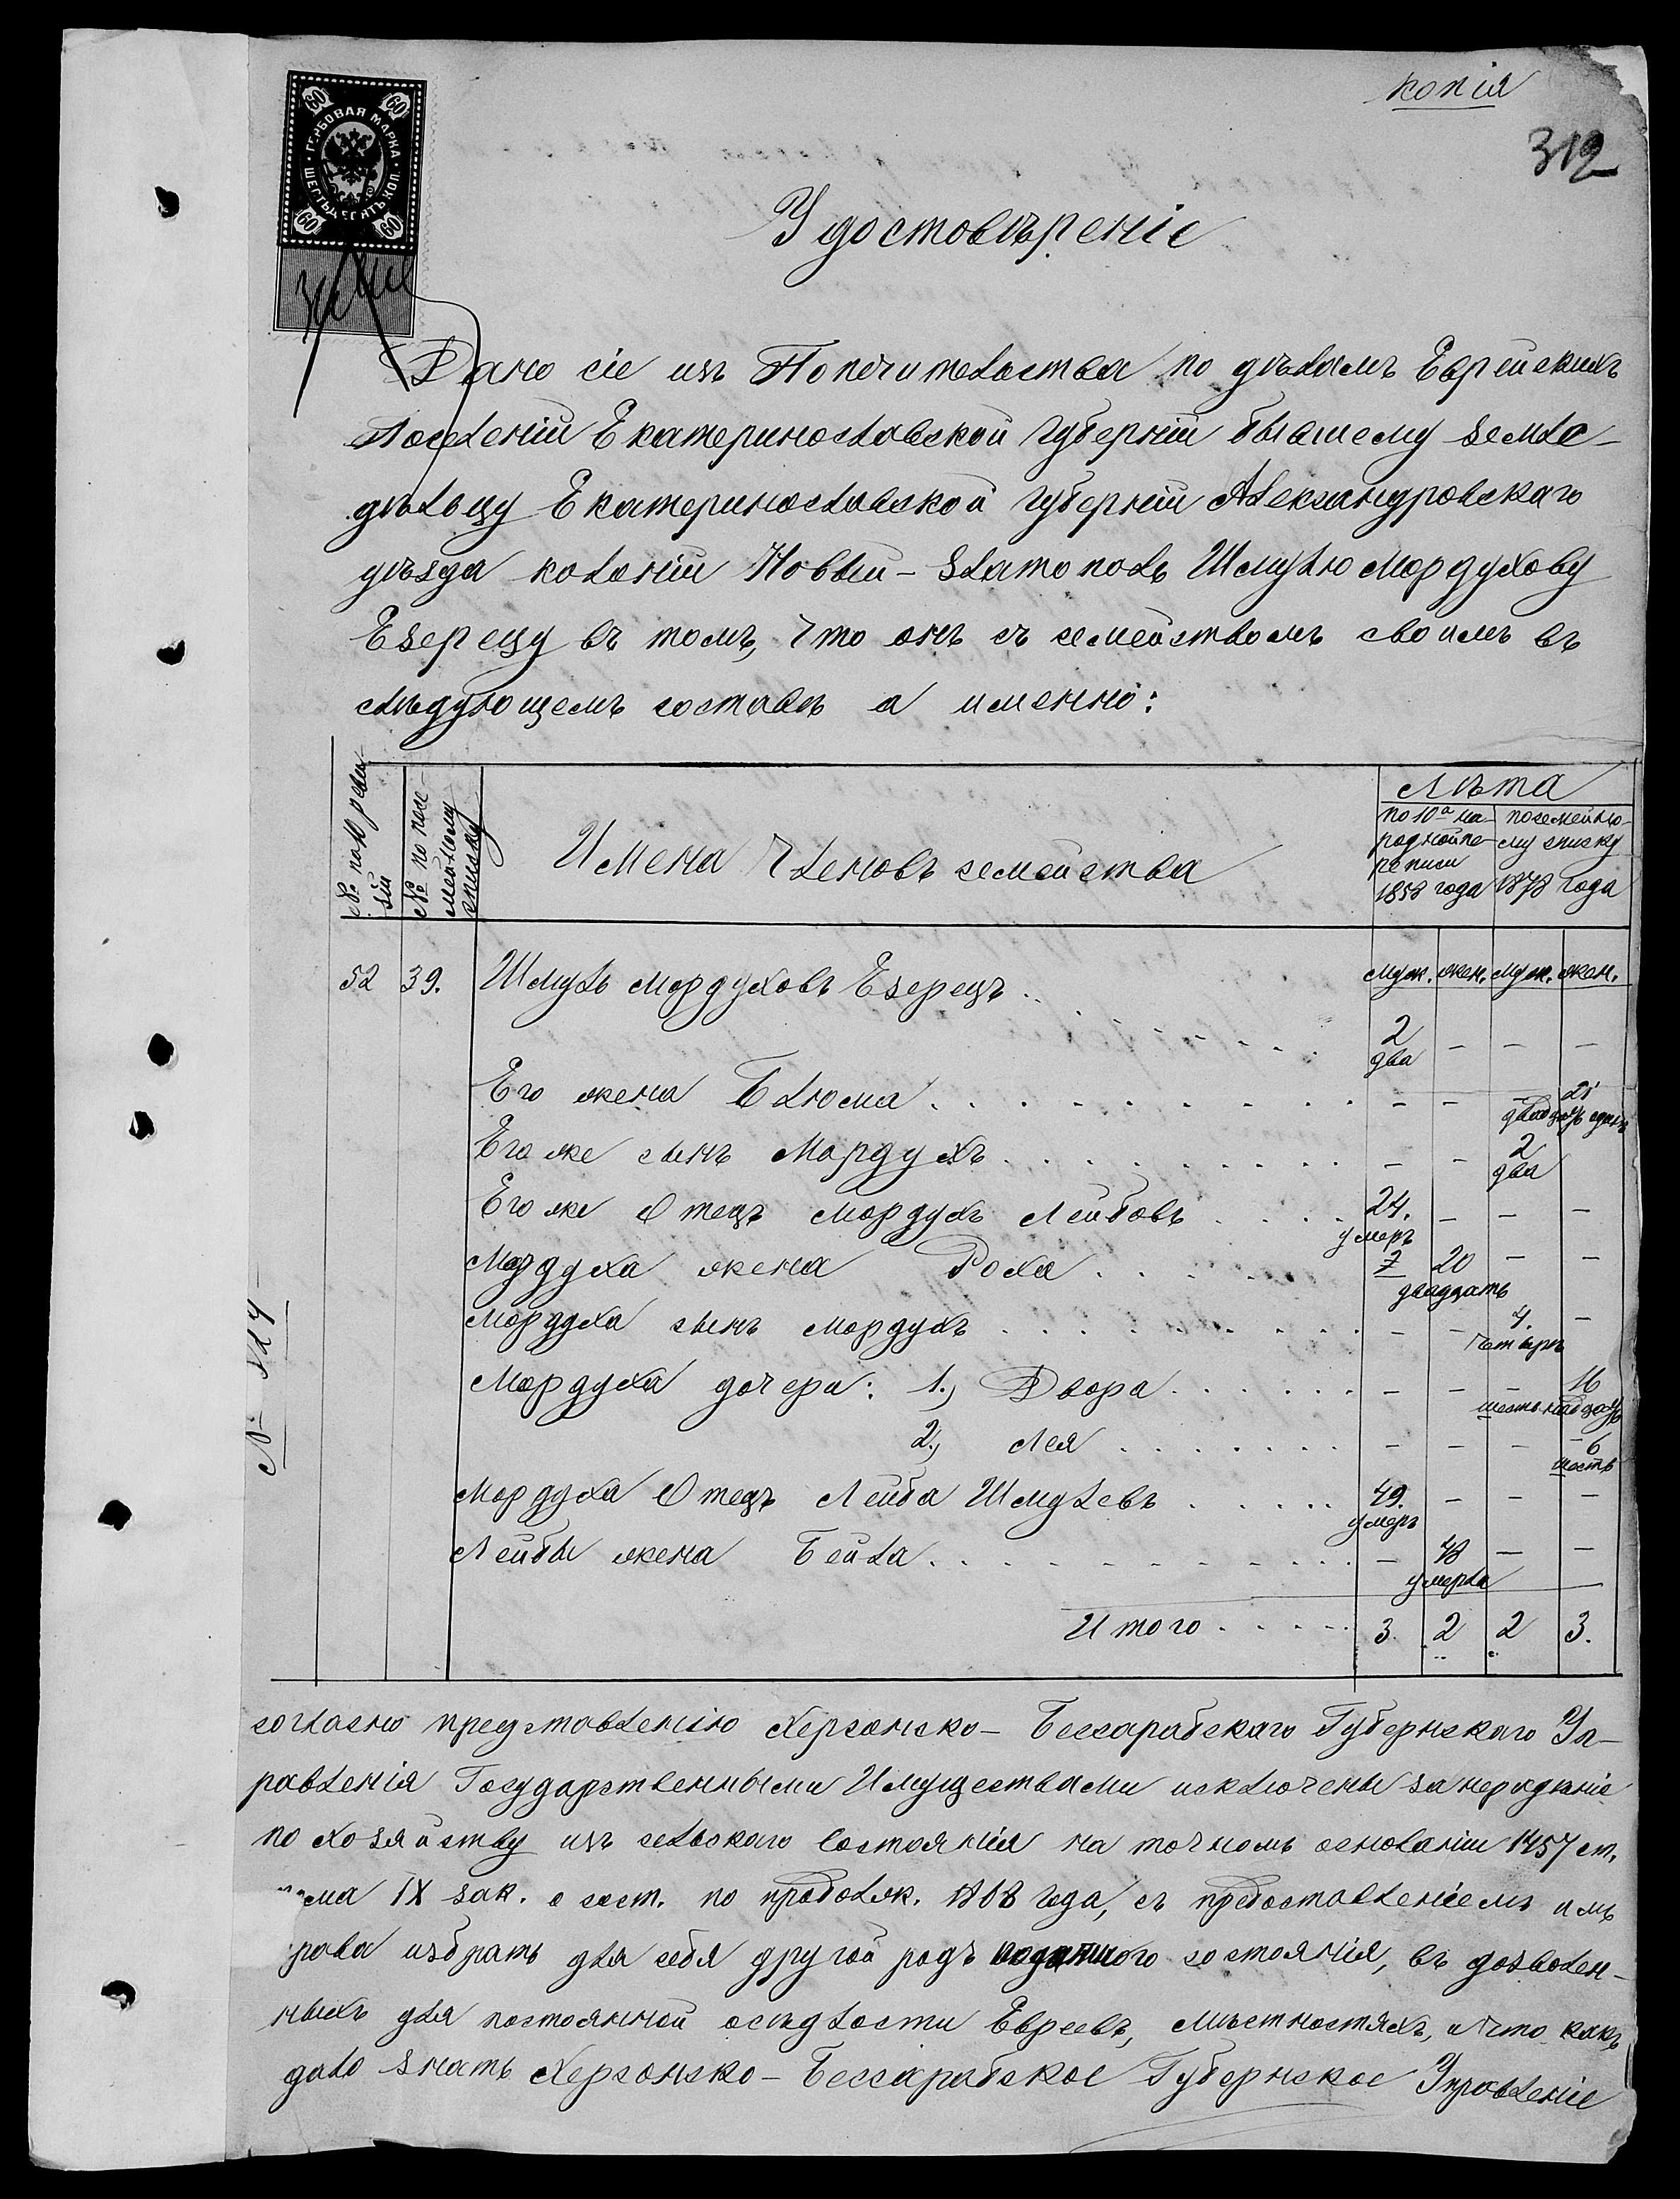 копія
312
ГЕРБОВАЯ МАРКА
ШЕСТЬДЕСЯТЪ КОП.
60 60
60 60
Удостовѣреніе
Дано сіе изъ Попечительства по дѣламъ Еврейскихъ
Поселеній Екатеринославской губерніи бывшему земле-
дѣльцу Екатеринославской губерніи Александровскаго
уѣзда колоніи Новый-Златополь Шмулю Мордухову
Езерецу въ томъ, что онъ съ семействомъ своимъ въ
слѣдующемъ составѣ а именно:
№ по 10 реви-
зіи
№ по посе-
мейному
списку
Имена членовъ семейства
Лѣта
по 10ª на-
родной пе-
реписи
1858 года
посемейно-
му списку
1878 года
52 39. Шмуль Мордуховъ Езерецъ муж. жен. муж. жен.
2 — — —
два
Его жена Блюма — — — 21
двадцать одинъ
Его же сынъ Мордухъ — — 2
два
Его же Отецъ Мордухъ Лейбовъ 24. — — —
умеръ
Мордуха жена Роха 20 — —
двадцать
Мордуха сынъ Мордухъ — — 4. —
четыре
Мордуха дочери: 1., Двора — — — 16
шестьнадцать
2., Лея — — — 6
шесть
Мордуха Отецъ Лейба Шмулевъ 49. — — —
умеръ
Лейбы жена Бейла — 48 — —
умерла
Итого 3. 2 2 3.
№ 524
согласно представленію Херсонско-Бессарабскаго Губернскаго Уп-
равленія Государственными Имуществами исключены за нерадѣніе
по хозяйству изъ сельскаго состоянія на точномъ основаніи 1457 ст.
ома IX зак. о сост. по продолж. 1868 года, съ предоставленіемъ имъ
рава избрать для себя другой родъ податного состоянія, въ дозволен-
ныхъ для постоянной осѣдлости Евреевъ, мѣстностяхъ, и что какъ
дало знать Херсонско-Бессарабское Губернское Управленіе